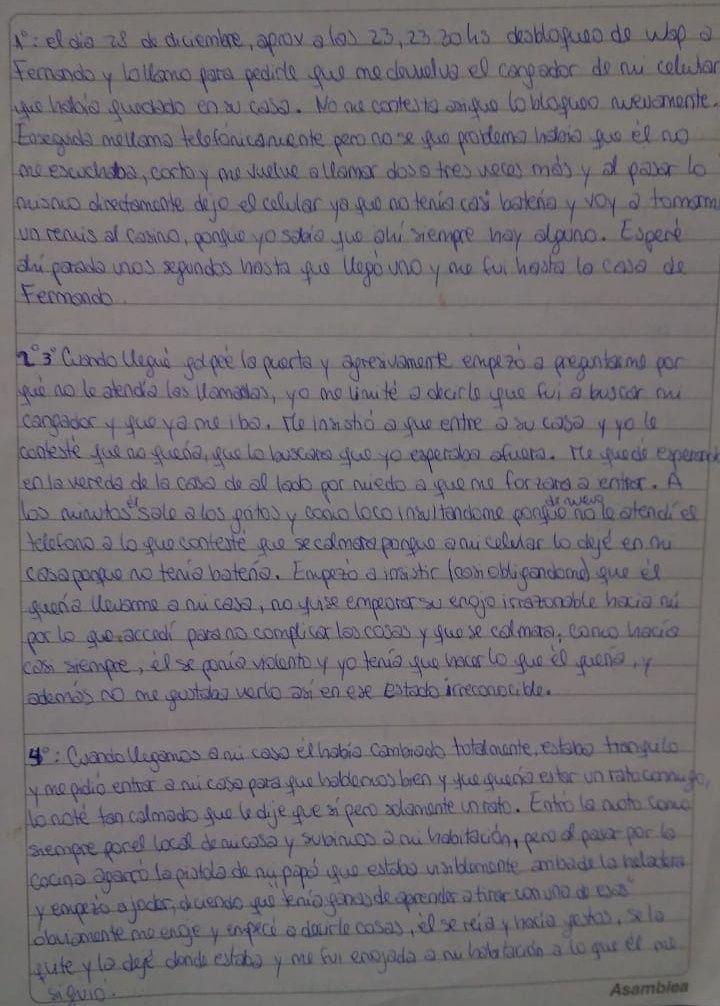 1°: el día 28 de diciembre, aprox a los 23, 23.30 hs desbloqueo de wsp a
Fernando y lo llamo para pedirle que me devuelva el cargador de mi celular
que había quedado en su casa. No me contesta así que lo bloqueo nuevamente.
Enseguida me llama telefónicamente pero no se que problema había que él no
me escuchaba, corto y me vuelve a llamar dos o tres veces más y al pasar lo
mismo directamente dejo el celular ya que no tenía casi batería y voy a tomarm
un remis al casino, porque yo sabía que ahí siempre hay alguno. Esperé
ahí parada unos segundos hasta que llegó uno y me fui hasta la casa de
Fernando.
2° 3° Cuando llegué golpeé la puerta y agresivamente empezó a preguntarme por
qué no le atendía las llamadas, yo me limité a decirle que fui a buscar mi
cargador y que ya me iba. Me insistió a que entre a su casa y yo le
contesté que no quería, que lo buscara que yo esperaba afuera. Me quedé esperando
en la vereda de la casa de al lado por miedo a que me forzara a entrar. A
los minutos él sale a los gritos y como loco insultandome porque de nuevo no le atendí el
teléfono a lo que contesté que se calmara porque a mi celular lo dejé en mi
casa porque no tenía batería. Empezó a insistir (casi obligandome) que él
quería llevarme a mi casa, no quise empeorar su enojo irrazonable hacia mí
por lo que accedí para no complicar las cosas y que se calmara, como hacía
casi siempre, él se ponía violento y yo tenía que hacer lo que él quería, y
además no me gustaba verlo así en ese estado irreconocible.
4°: Cuando llegamos a mi casa él había cambiado totalmente, estaba tranquilo
y me pidió entrar a mi casa para que hablemos bien y que quería estar un rato conmigo,
lo noté tan calmado que le dije que sí pero solamente un rato. Entró la moto como
siempre por el local de mi casa y subimos a mi habitación, pero al pasar por la
cocina agarró la pistola de mi papá que estaba visiblemente arriba de la heladera
y empezó a joder, diciendo que "tenía ganas de aprender a tirar con una de esas"
obviamente me enojé y empecé a decirle cosas, él se reía y hacía gestos, se la
quité y la dejé donde estaba y me fui enojada a mi habitación a lo que él me
siguió.
Asamblea